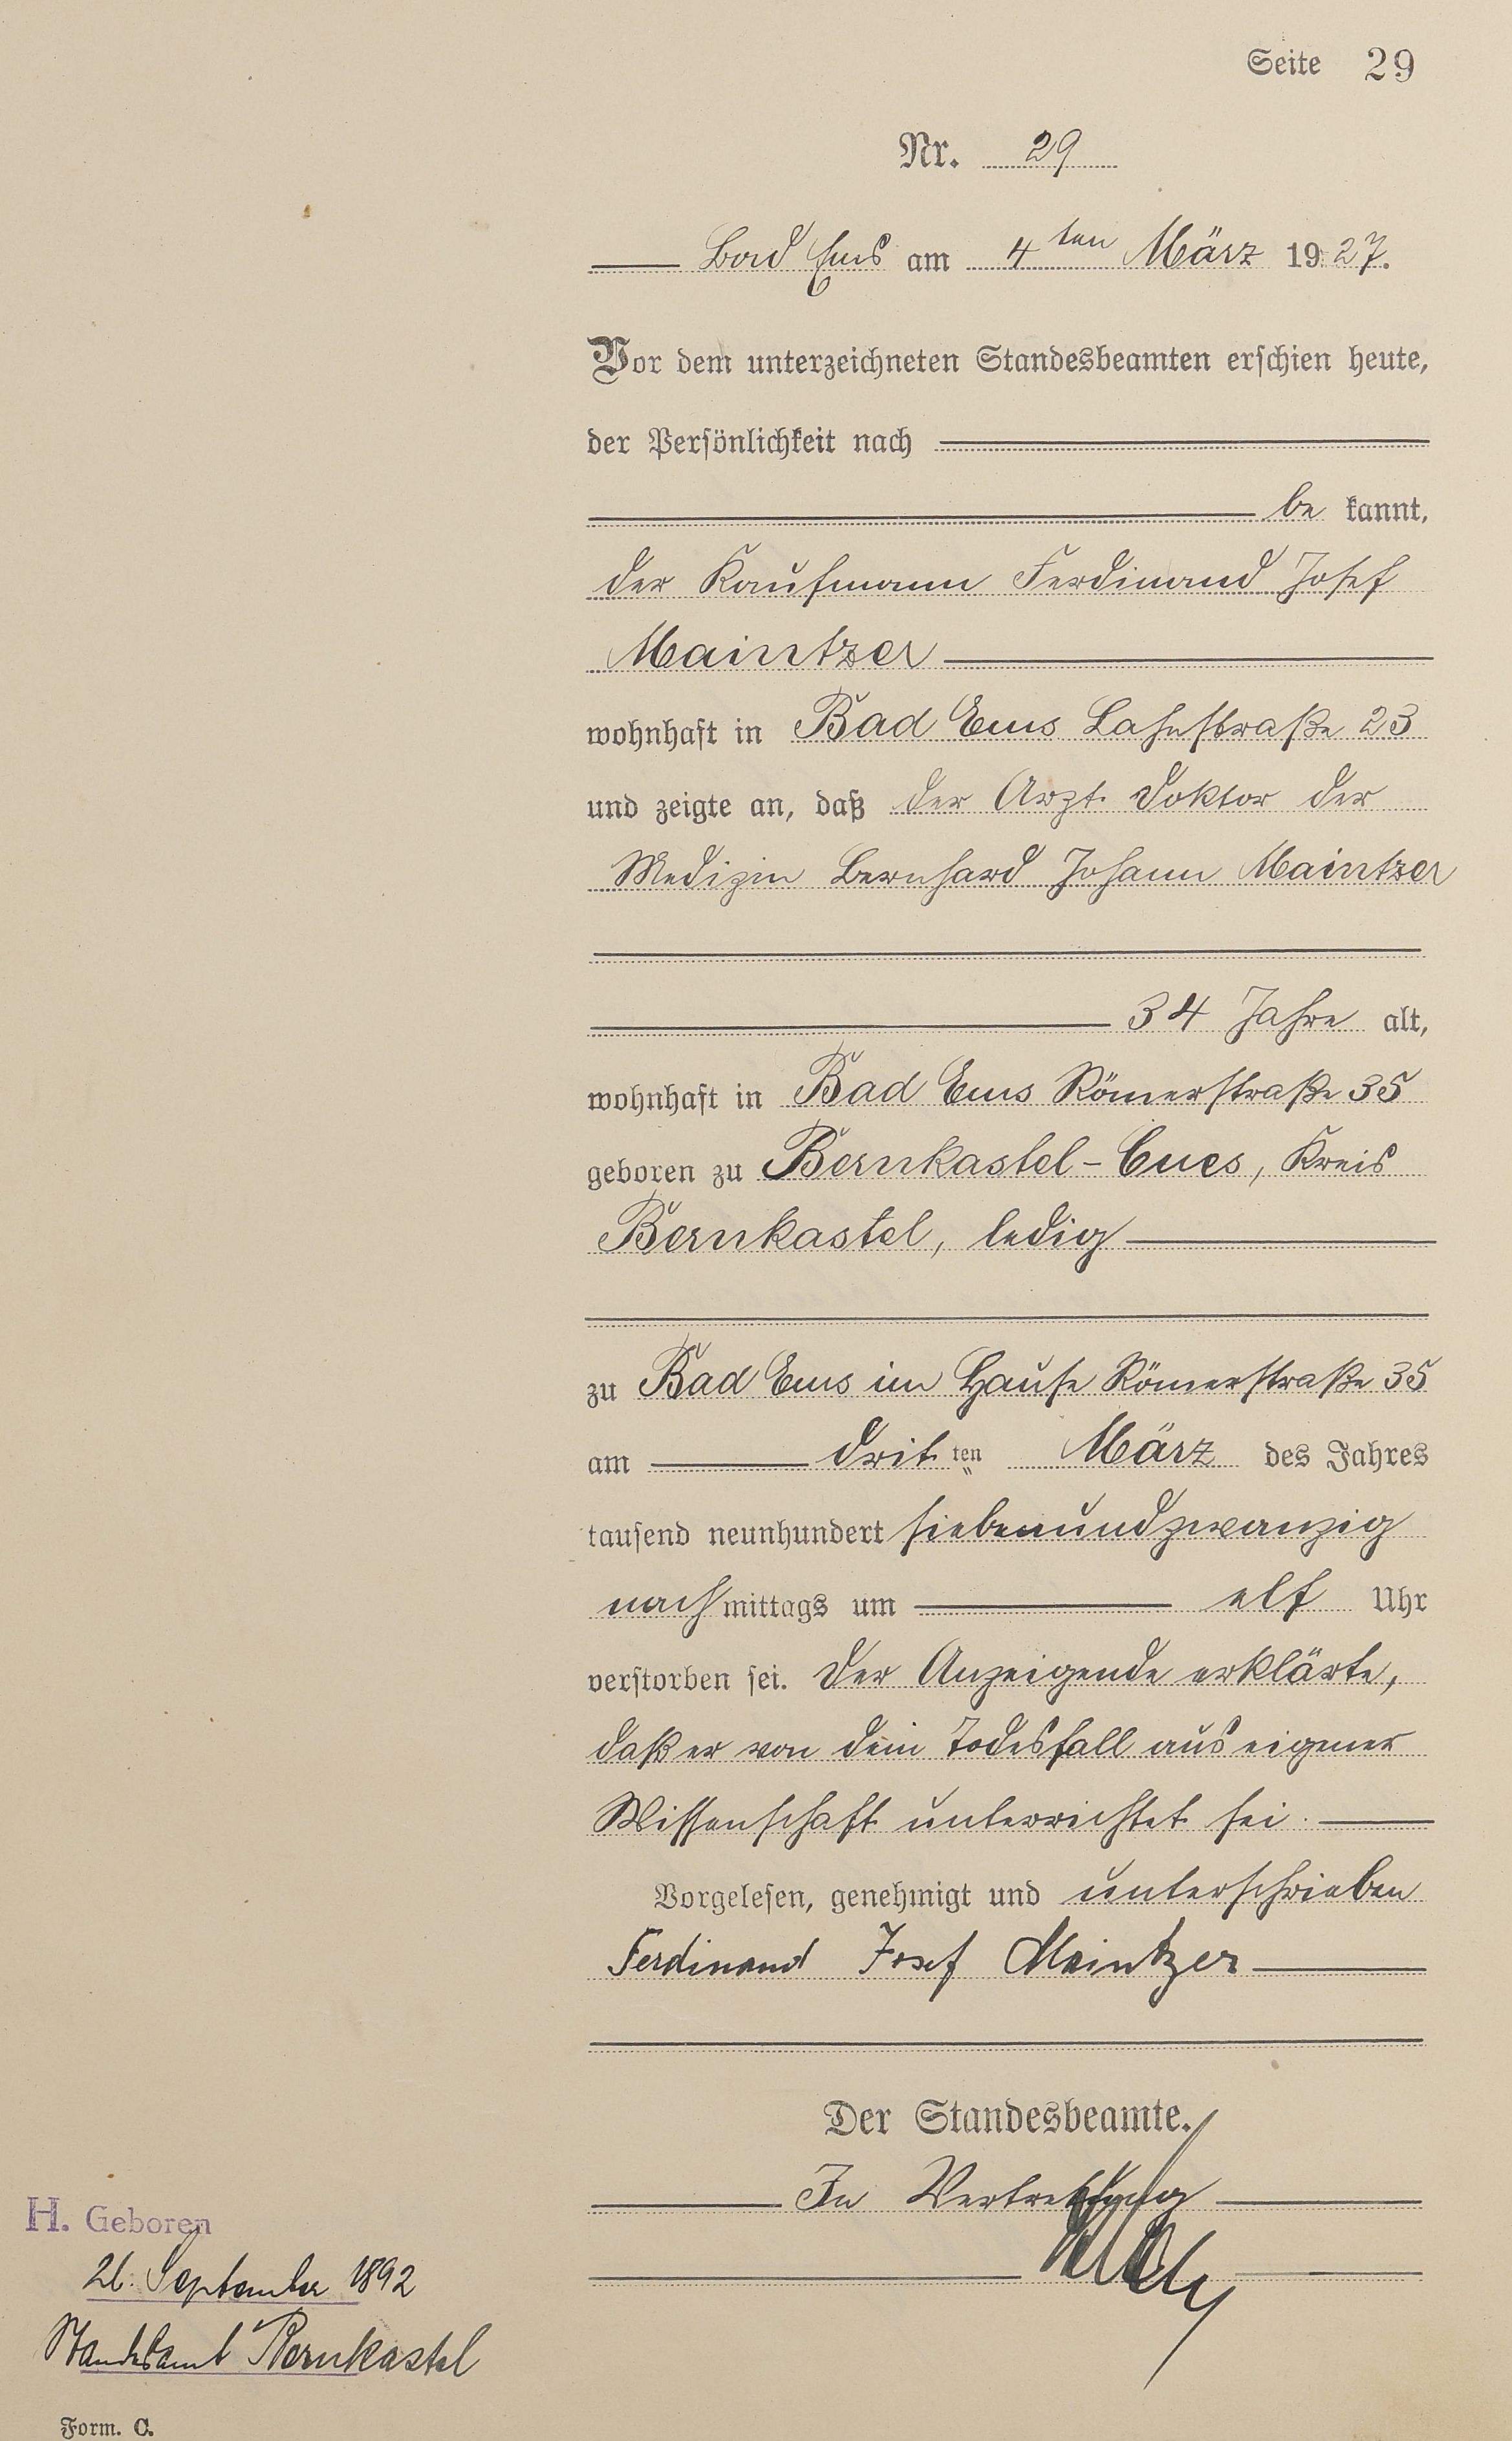 Seite 29
Nr. 29
Bad Ems am 4ten März 1927.
Vor dem unterzeichneten Standesbeamten erschien heute,
der Persönlichkeit nach
be kannt,
der Kaufmann Ferdinand Josef
Maintzer
wohnhaft in Bad Ems Lahnstraße 23
und zeigte an, daß der Arzt Doktor der
Medizin Bernhard Johann Maintzer
34 Jahre alt,
wohnhaft in Bad Ems Römerstraße 35
geboren zu Bernkastel-Cues, Kreis
Bernkastel, ledig
zu Bad Ems im Hause Römerstraße 35
am drit ten März des Jahres
tausend neunhundert siebenundzwanzig
nachmittags um elf Uhr
verstorben sei. Der Anzeigende erklärte,
daß er von dem Todesfall aus eigener
Wissenschaft unterrichtet sei.
Vorgelesen, genehmigt und unterschrieben
Ferdinand Josef Maintzer
Der Standesbeamte.
In Vertretung
H. Geboren
September 1892
Standesamt Bernkastel
Form. C.